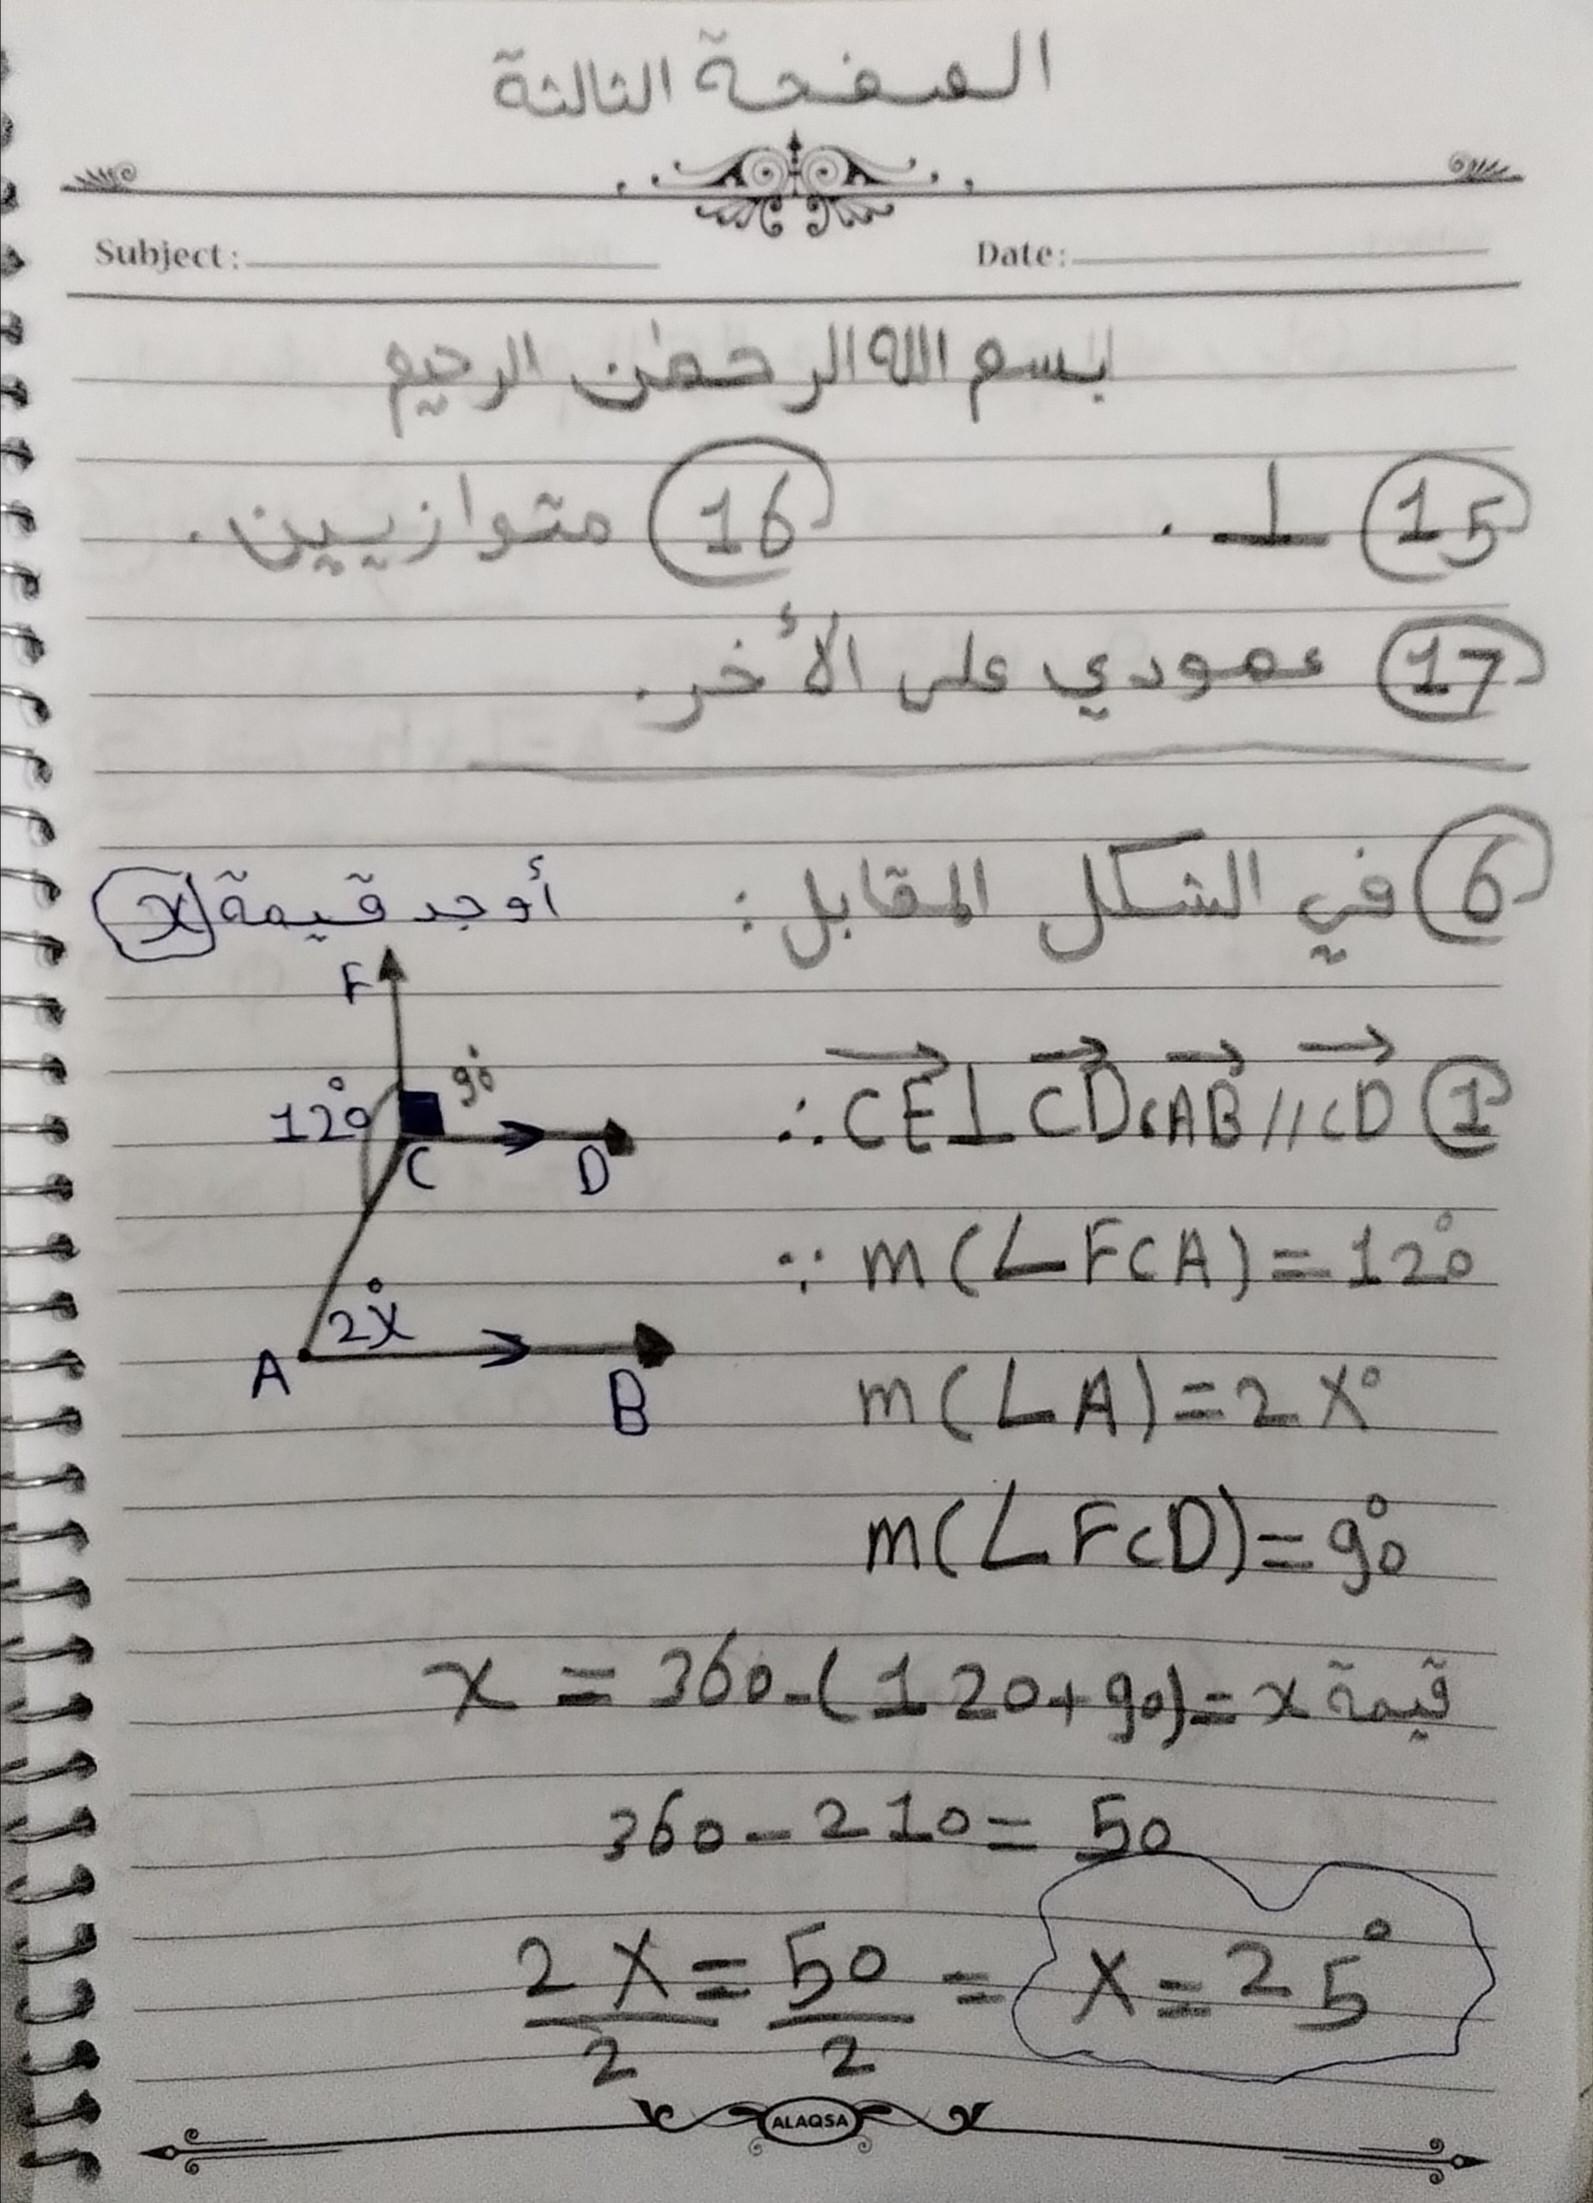 الصفحة الثالثة
Subject: Date:
بسم الله الرحمن الرحيم
15 ⊥. 16 متوازيين.
17 عمودي على الأخر.
6 في الشكل المقابل: أوجد قيمة x
F
90°
120°
C D
2x°
A B
1 ∴ CE⊥CD, AB//CD
∵ m(∠FCA)=120°
m(∠A)=2x°
m(∠FCD)=90°
قيمة x = 360-(120+90)= x
360-210=50
2x/2 = 50/2 = x=25°
ALAQSA